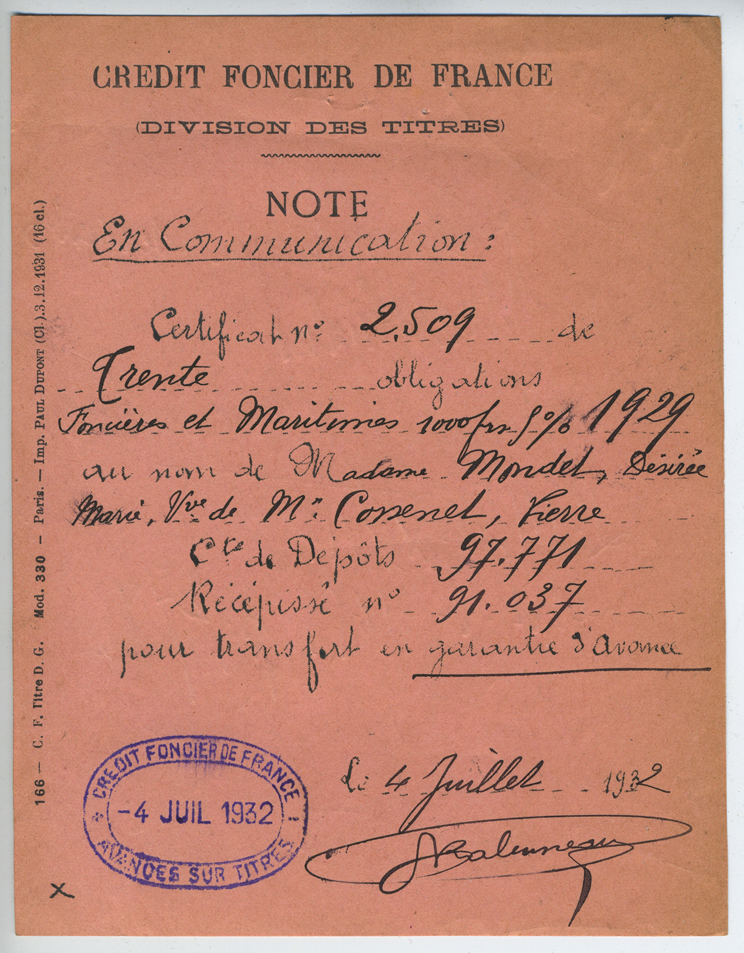 CREDIT FONCIER DE FRANCE
(DIVISION DES TITRES)
NOTE
En Communication :
Certificat n° 2.509 de
Trente obligations
Foncières et Maritimes 1000 frs 5% 1929
au nom de Madame Mondet, Désirée
Marie, Vve de Mr Cossenet, Pierre
Cte de Dépôts 97.771
Récépissé n° 91.037
pour transfert en garantie d'Avance
Le 4 Juillet 1932
CREDIT FONCIER DE FRANCE
-4 JUIL 1932
AVANCES SUR TITRES
X
166 — C. F. Titre D. G. Mod. 330 — Paris. — Imp. PAUL DUPONT (Cl.).3.12.1931 (16 cl.)